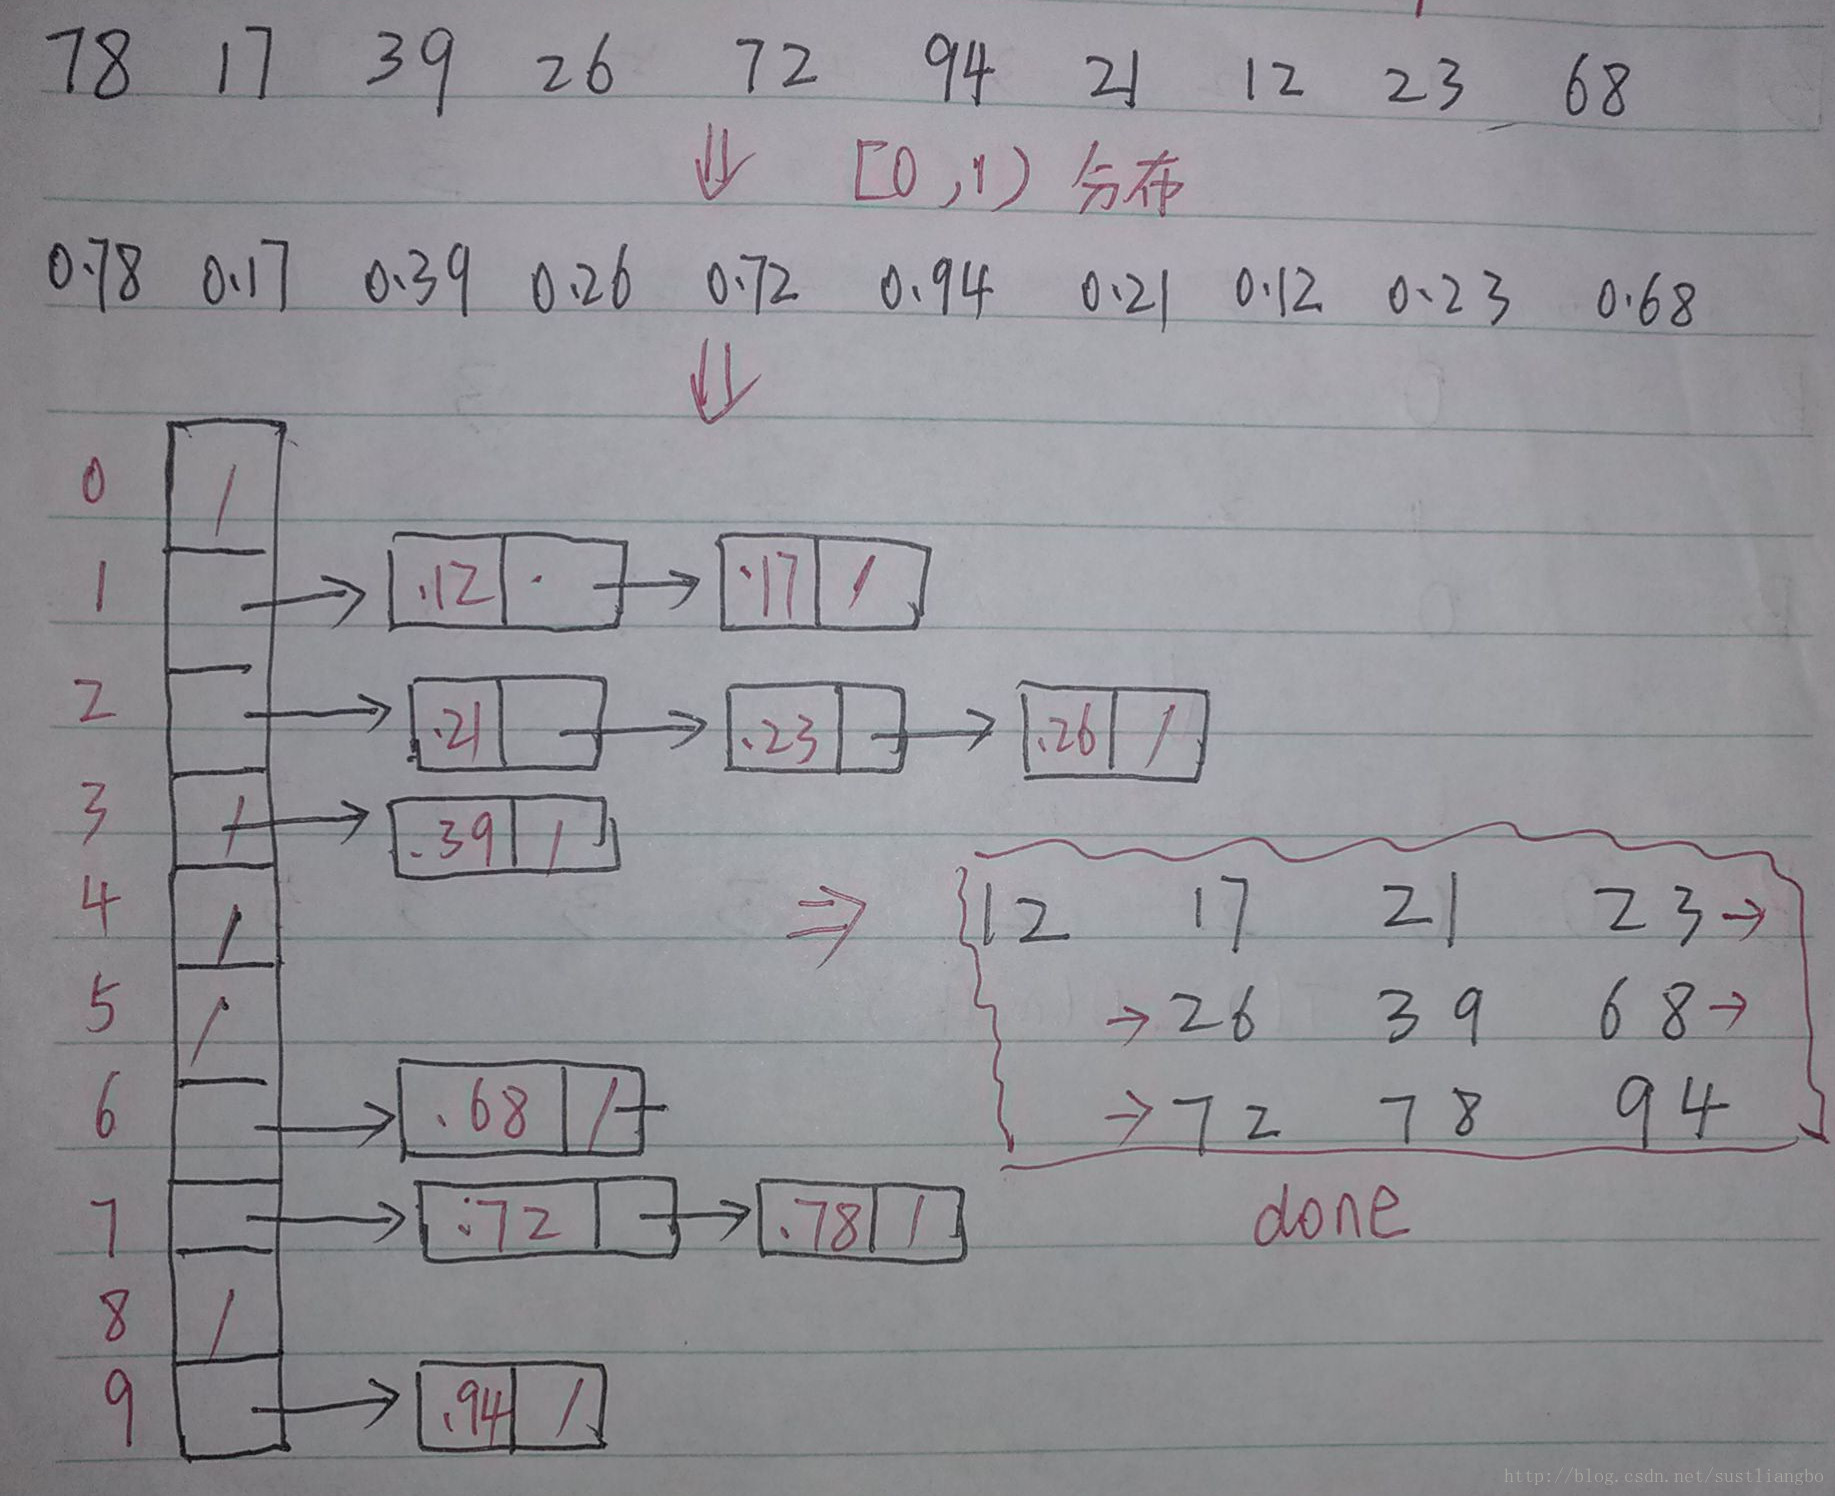 78 17 39 26 72 94 21 12 23 68
[0,1) 分布
0.78 0.17 0.39 0.26 0.72 0.94 0.21 0.12 0.23 0.68
0 /
1 .12 .17 /
2 .21 .23 .26 /
3 / .39 /
4 /
5 /
6 .68 /
7 .72 .78 /
8 /
9 .94 /
⇒ 12 17 21 23 →
→ 26 39 68 →
→ 72 78 94
done
http://blog.csdn.net/sustliangbo